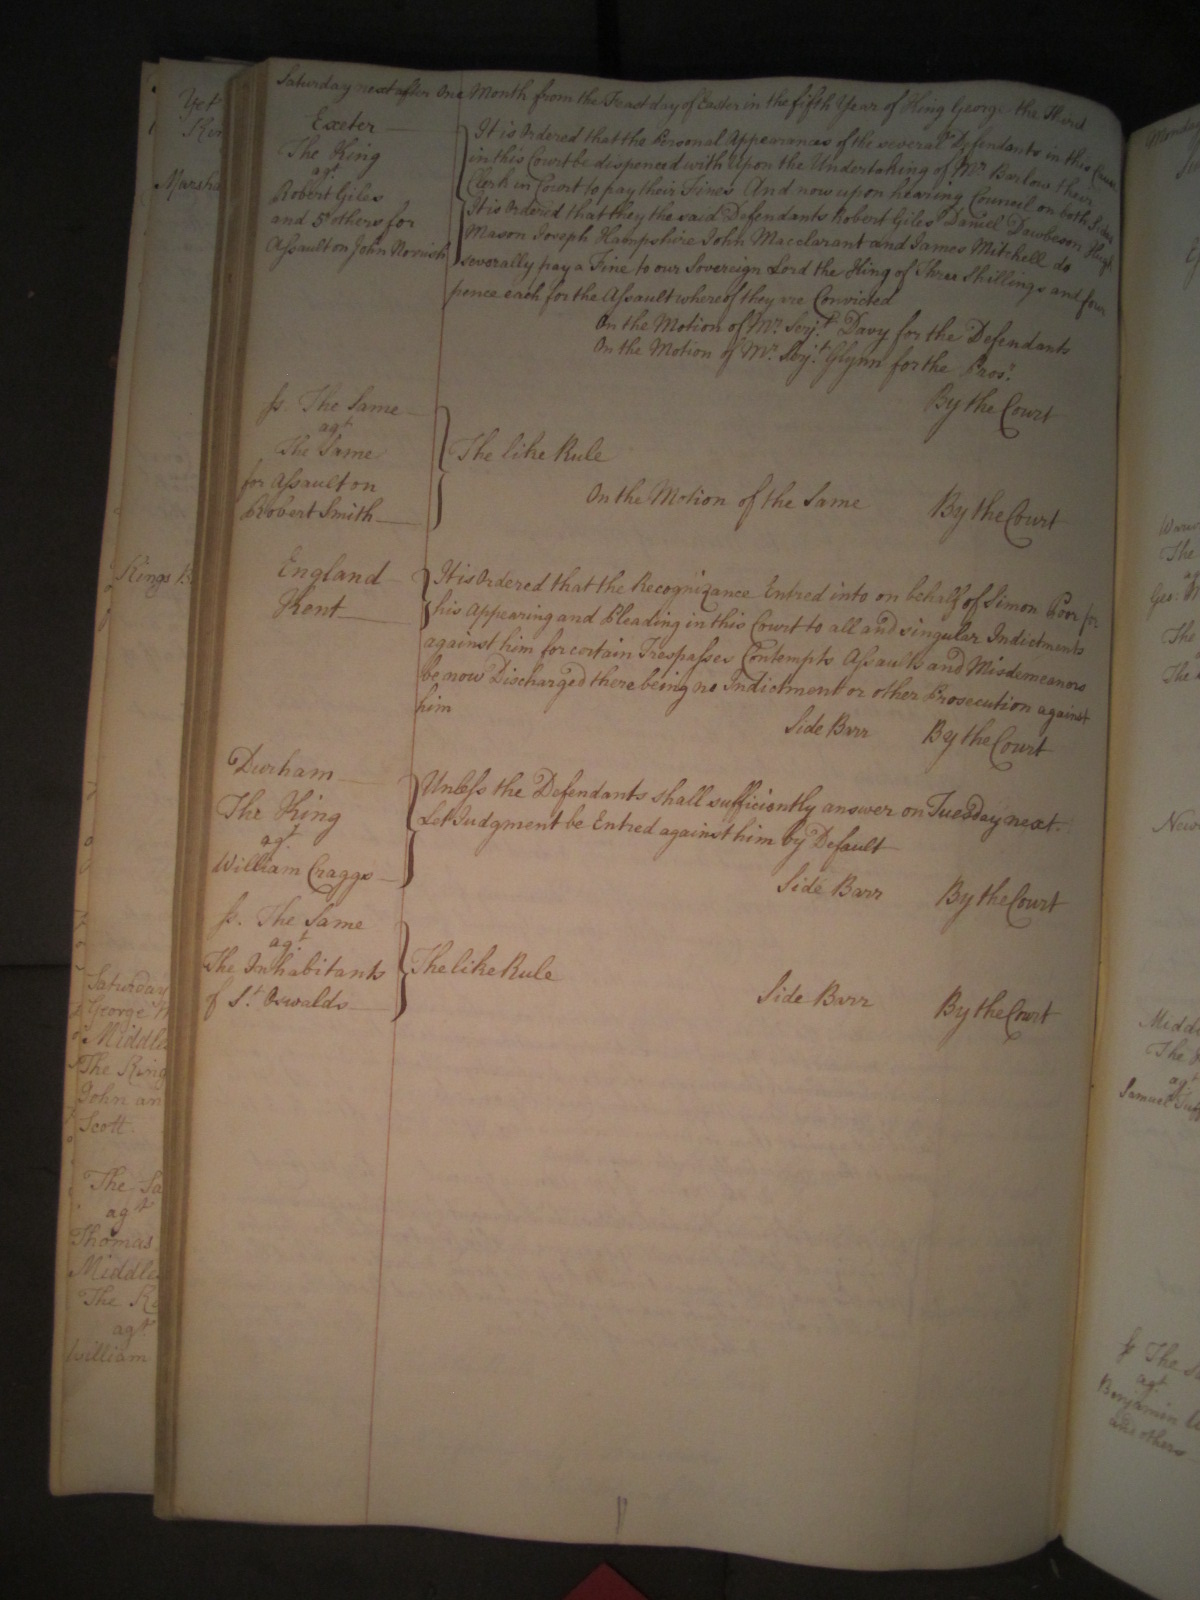 Saturday next after One Month from the Feast day of Easter in the fifth Year of King George the Third
Exeter
The King
agt
Robert Giles
and 5 others for
Assault on John Norrish
It is Ordered that the Personal Appearances of the several Defendants in this Cause
in this Court be dispenced with upon the Undertaking of Mr Barlow their
Clerk in Court to pay their Fines And now upon hearing Councel on both Sides
It is Ordered that they the said Defendants Robert Giles Daniel Dewbeson Hugh
Mason Joseph Hampshire John Macclarant and James Mitchell do
severally pay a Fine to our Sovereign Lord the King of Three Shillings and four
pence each for the Assault whereof they are Convicted
On the Motion of Mr. Serj.t Davy for the Defendants
On the Motion of Mr. Serj.t Glynn for the Pros.r
By the Court
ss. The Same
agt
The Same
for Assault on
Robert Smith
The like Rule
On the Motion of the Same By the Court
England
Kent
It is Ordered that the Recognizance Entred into on behalf of Simon Poor for
his Appearing and Pleading in this Court to all and singular Indictments
against him for certain Trespasses Contempts Assaults and Misdemeanors
be now Discharged there being no Indictment or other Prosecution against
him
Side Barr By the Court
Durham
The King
agt
William Craggs
Unless the Defendants shall sufficiently answer on Tuesday next.
Let Judgment be Entred against him by Default
Side Barr By the Court
ss. The Same
agt
The Inhabitants
of St. Oswalds
The like Rule
Side Barr By the Court
Yet
Marsha
Kings
Saturday
George
Middle
The King
John an
Scott
The Sa
agt
Thomas
Middle
The
agt
William
Monday
The
ag
Geo:
The
The
New
Midd
The
agt
Samuel
ss The
agt
Benjamin
and others